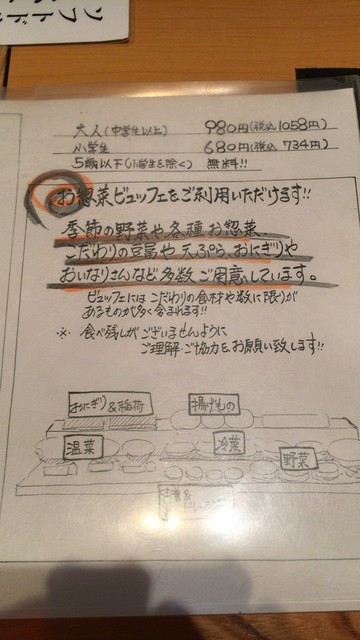 ソフトド
大人(中学生以上) 980円(税込1058円)
小学生 680円(税込 734円)
5歳以下(小学生を除く) 無料!!
お惣菜ビュッフェをご利用いただけます!!
季節の野菜や各種お惣菜、
こだわりの豆腐や天ぷら、おにぎりや
おいなりさんなど多数ご用意しています。
ビュッフェにはこだわりの食材や数に限りが
あるものが多く含まれます!!
※ 食べ残しがございませんように
ご理解・ご協力をお願い致します!!
おにぎり&稲荷
揚げもの
温菜
冷菜
野菜